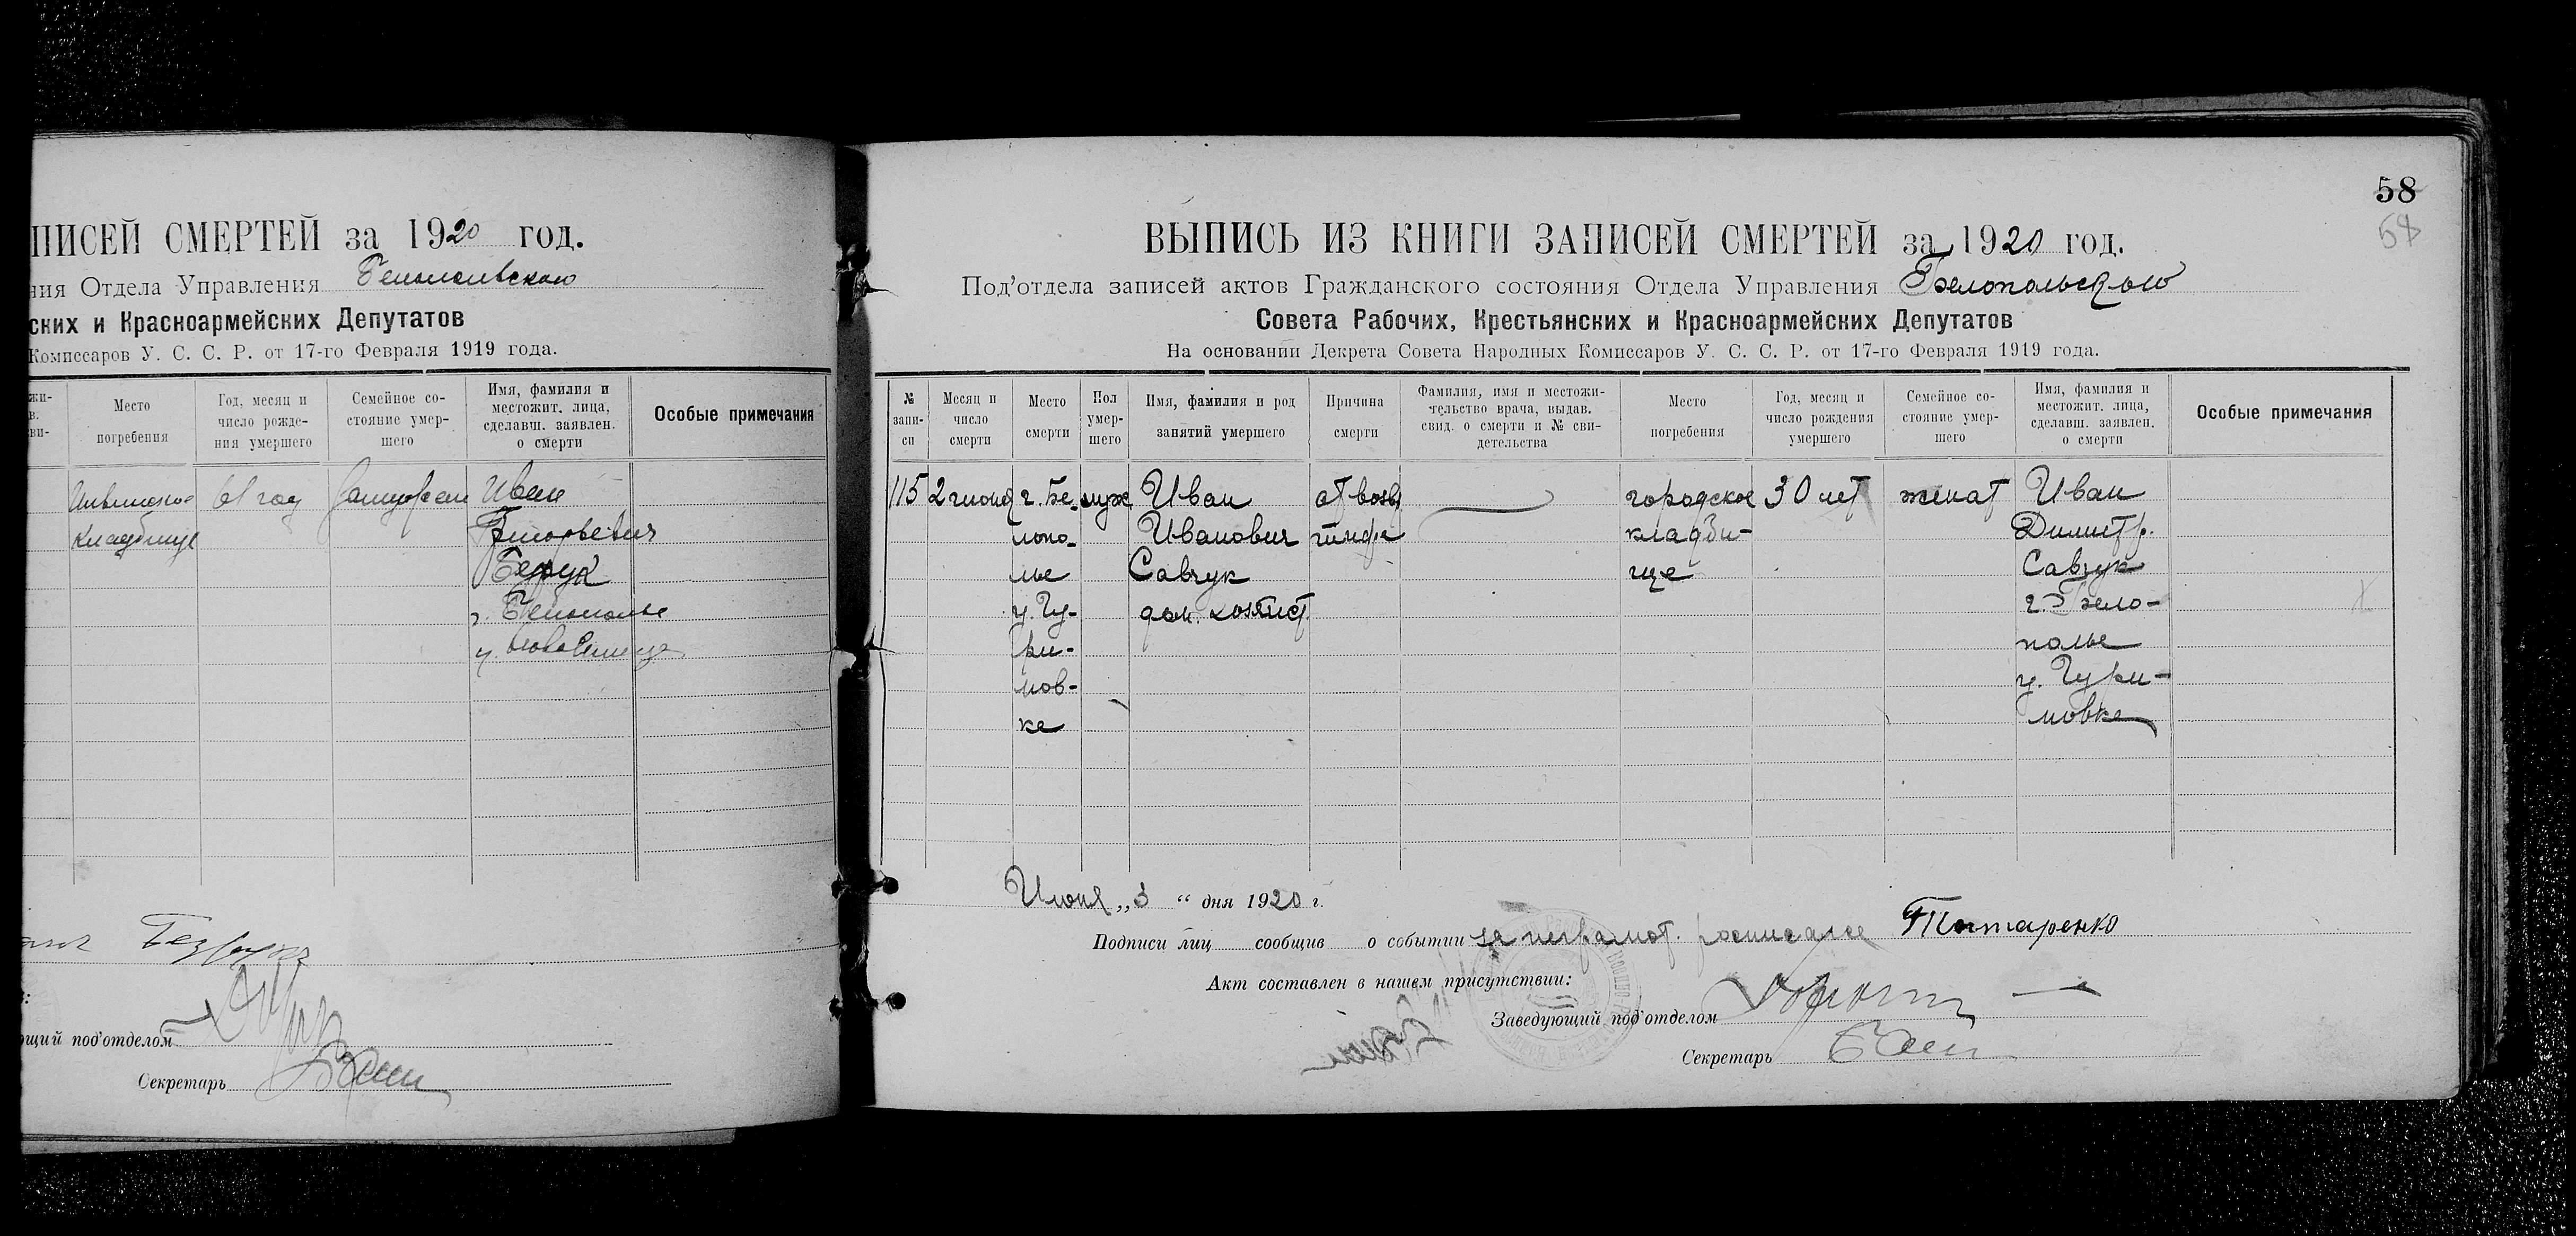 ПИСЕЙ СМЕРТЕЙ за 1920 год.
ния Отдела Управления Белопольского
ских и Красноармейских Депутатов
Комиссаров У. С. С. Р. от 17-го Февраля 1919 года.
жи-
в.
ви-
Место
погребения
Год, месяц и
число рожде-
ния умершего
Семейное со-
стояние умер-
шего
Имя, фамилия и
местожит. лица,
сделавш. заявлен.
о смерти
Особые примечания
кладбище
61 год
Замужем
Иван
Григорьевич
г. Белополье
щий под'отделом
Секретарь
58
58
ВЫПИСЬ ИЗ КНИГИ ЗАПИСЕЙ СМЕРТЕЙ за 1920 год.
Под'отдела записей актов Гражданского состояния Отдела Управления Белопольского
Совета Рабочих, Крестьянских и Красноармейских Депутатов
На основании Декрета Совета Народных Комиссаров У. С. С. Р. от 17-го Февраля 1919 года.
№
запи-
си
Месяц и
число
смерти
Место
смерти
Пол
умер-
шего
Имя, фамилия и род
занятий умершего
Причина
смерти
Фамилия, имя и местожи-
тельство врача, выдав.
свид. о смерти и № сви-
детельства
Место
погребения
Год, месяц и
число рождения
умершего
Семейное со-
стояние умер-
шего
Имя, фамилия и
местожит. лица,
сделавш. заявлен.
о смерти
Особые примечания
115
2 июня
г. Бе-
лопо-
лье
у. Чу-
ри-
лов-
ке
муж
Иван
Иванович
Савчук
дом. хозяист.
от возв
тифа
городское
кладби-
ще
30 лет
женат
Иван
Димитр.
Савчук
г. Бело-
полье
у. Чури-
ловке
Июня „3 “ дня 1920 г.
Подписи лиц сообщив о событии за неграмот. росписался Титаренко
Акт составлен в нашем присутствии:
Заведующий под'отделом
Секретарь